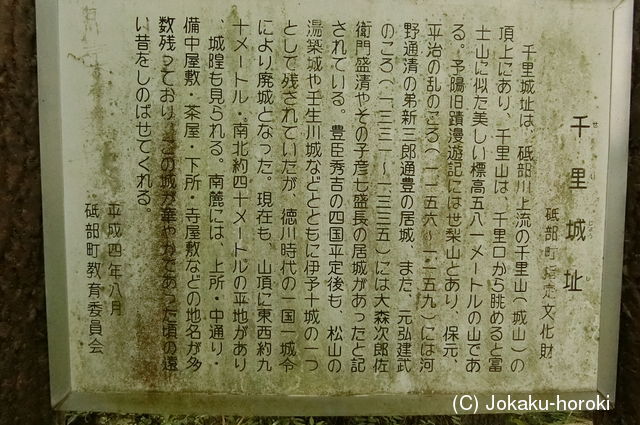 千里城址
せんり じょう し
砥部町指定文化財
千里城址は、砥部川上流の千里山(城山)の
頂上にあり、千里山は、千里口から眺めると富
士山に似た美しい標高五八一メートルの山であ
る。予陽旧蹟漫遊記にはせ梨山とあり、保元、
平治の乱のころ(一一五六~一一五九)には河
野通清の弟新三郎通豊の居城、また、元弘建武
のころ(一三三一~一三三五)には大森次郎佐
衛門盛清やその子彦七盛長の居城があったと記
されている。豊臣秀吉の四国平定後も、松山の
湯築城や壬生川城などとともに伊予十城の一つ
として残されていたが、徳川時代の一国一城令
により廃城となった。現在も、山頂に東西約九
十メートル・南北約四十メートルの平地があり
、城隍も見られる。南麓には、上所・中通り・
備中屋敷・茶屋・下所・寺屋敷などの地名が多
数残っており、この城が華やかであった頃の遠
い昔をしのばせてくれる。
平成四年八月
砥部町教育委員会
(C) Jokaku-horoki